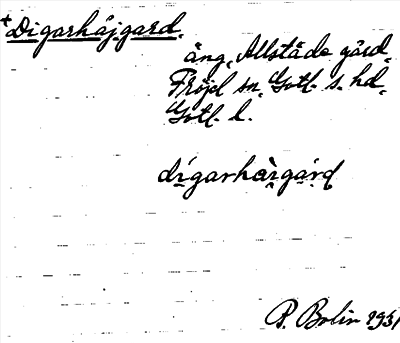 +Digarhájgard,
äng, Allstäde gård,
Fröjel sn, Gotl. s. hd,
Gotl. l.
dígarhàrgạ́rd
P. Bolin 1931